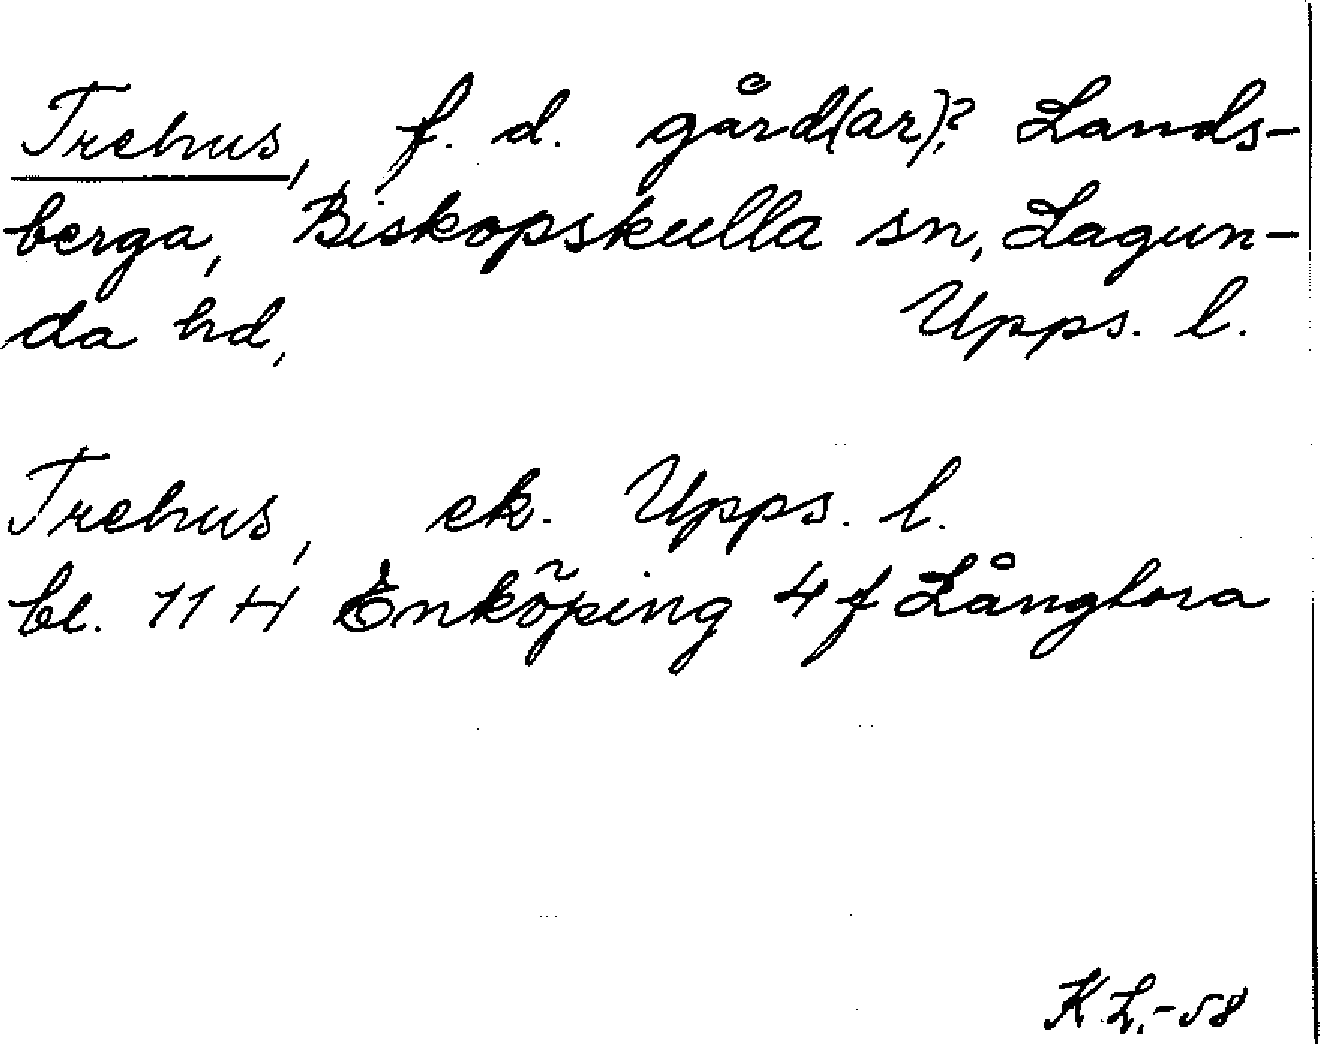 Trehus, f. d. gård(ar)? Lands-
berga, Biskopskulla sn, Lagun-
da hd, Upps. l.
Trehus, ek. Upps. l.
bl. 11 H Enköping 4 f Långtora
K L.-58